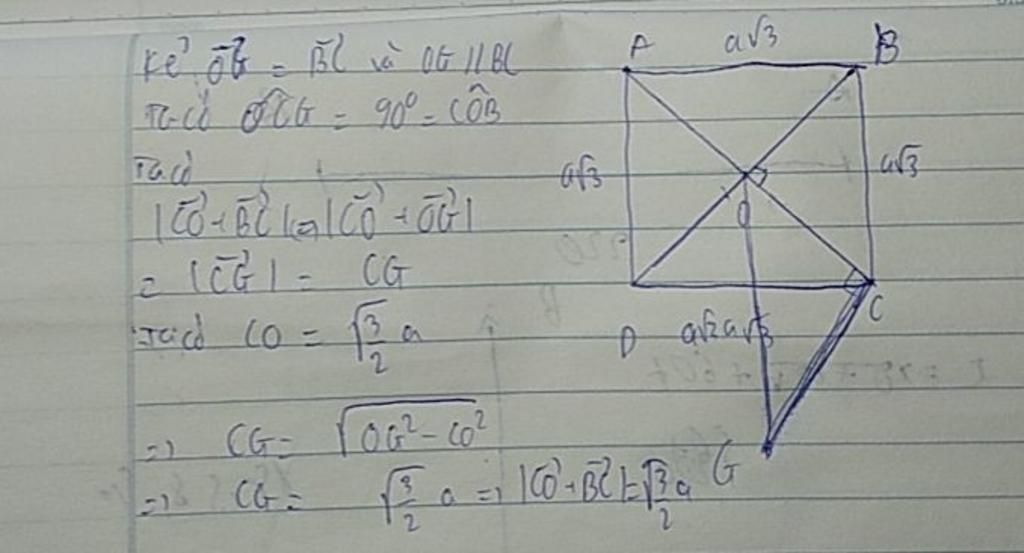 Kẻ \vec{OG} = \vec{BC} và OG // BC
Ta có \widehat{OCG} = 90° = \widehat{COB}
Ta có
|\vec{CO} + \vec{BC}| = |\vec{CO} + \vec{OG}|
= |\vec{CG}| = CG
Ta có CO = \sqrt{\frac{3}{2}} a
=> CG = \sqrt{OG^2 - CO^2}
=> CG = \sqrt{\frac{3}{2}} a => |\vec{CO} + \vec{BC}| = \sqrt{\frac{3}{2}} a
A a√3 B
a√3 a√3
O
D a√3 C
G